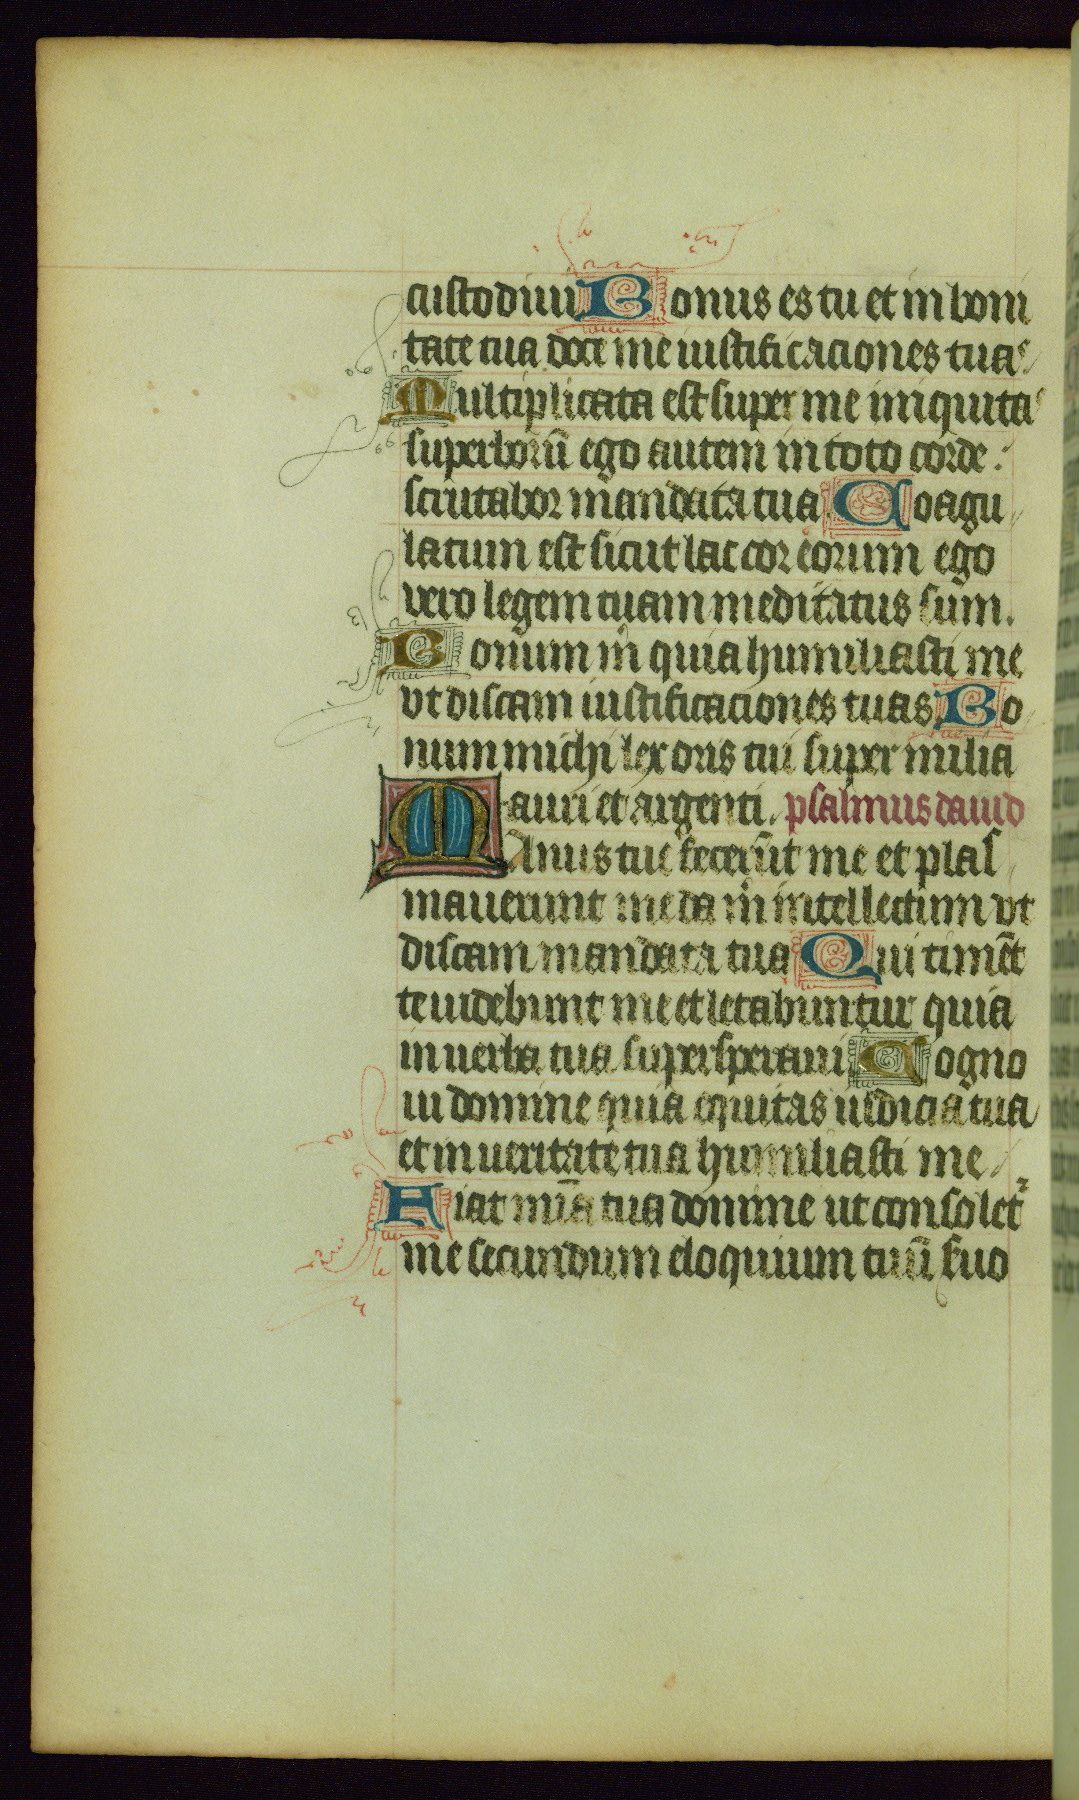 custodiui Bonus es tu et in boni
tate tua doce me iustificaciones tuas
Multiplicata est super me iniquitas
superborū ego autem in toto corde
scrutabor mandata tua Coagu
latum est sicut lac cor eorum ego
vero legem tuam meditatus sum.
Bonum m̄ quia humiliasti me
vt discam iustificaciones tuas Bo
num michi lex oris tui super milia
auri et argenti. psalmus dauid
MAnus tue fecerūt me et plas
mauerunt me da m̄ intellectum vt
discam mandata tua Qui timēt
te uidebunt me et letabuntur quia
in uerba tua supersperaui Cogno
ui domine quia equitas iudicia tua
et in ueritate tua humiliasti me
Fiat mīa tua domine ut consolet᷑
me secundum eloquium tuū seruo